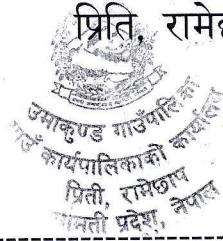 प्रिति, रामेछ
उमाकुण्ड गाउँपालिका
गाउँ कार्यपालिकाको कार्यालय
प्रिती, रामेछाप
बागमती प्रदेश, नेपाल